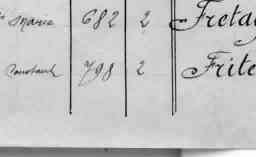 Marie 682 2 Freta
Constant 798 2 Frite